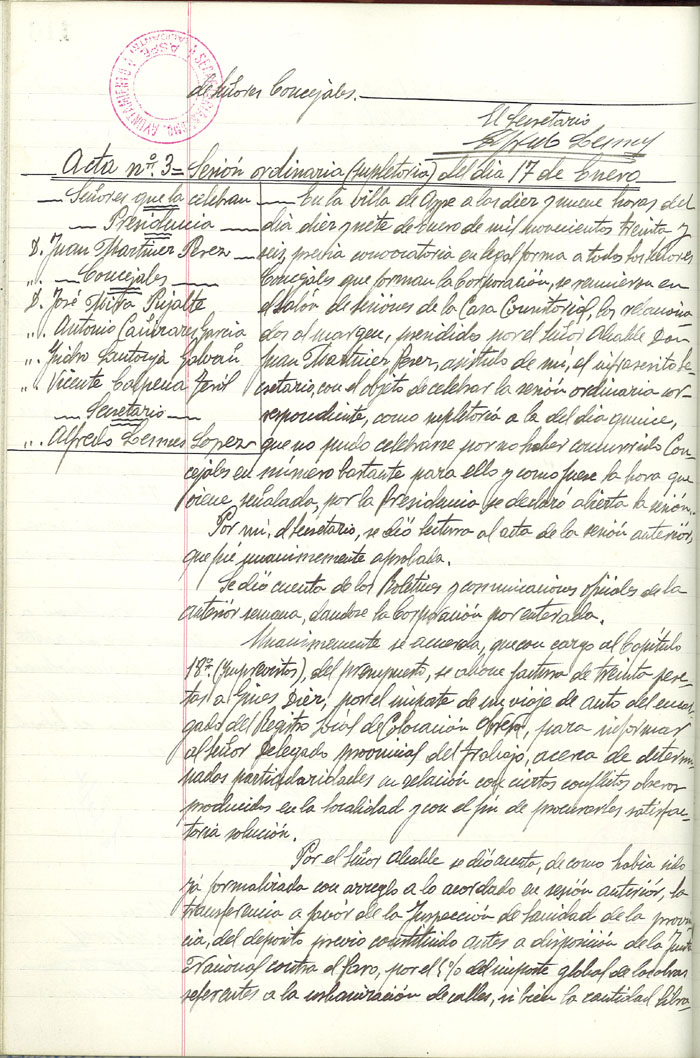 AYUNTAMIENTO
SECRETARIA
ASPE
(ALICANTE)
de Señores Concejales.
El Secretario
Alfredo Lesmes
Acta nº 3 = Sesión ordinaria (supletoria) del dia 17 de Enero
Señores que la celebran
Presidencia
D. Juan Martinez Perez
Concejales
D. José Mira Rizalte
„. Antonio Cañizares Garcia
„. Ysidro Santonja Galvañ
„. Vicente Calpena Jeról
Secretario
„. Alfredo Lesmes Lopez
En la villa de Aspe a las diez y nueve horas del
dia diez y siete de Enero de mil novecientos treinta y
seis, previa convocatoria en legal forma a todos los Señores
Concejales que forman la Corporación, se reunieron en
el salón de sesiones de la Casa Consistorial, los relaciona-
dos al margen, presididos por el Señor Alcalde Don
Juan Martinez Perez, asistido de mí, el infrascrito Se-
cretario, con el objeto de celebrar la sesión ordinaria cor-
respondiente, como supletoria a la del dia quince,
que no pudo celebrarse por no haber concurrido Con-
cejales en número bastante para ello y como fuese la hora que
viene señalada, por la Presidencia se declaró abierta la sesión.
Por mí, el Secretario, se dió lectura al acta de la sesión anteriór,
que fué unanimemente aprobada.
Se dió cuenta de los Boletines y comunicaciones oficiales de la
anteriór semana, dandose la Corporación por enterada.
Unanimemente se acuerda, que con cargo al Capítulo
18º (Imprevistos), del presupuesto, se abone factura de treinta pese-
tas a Gines Diez, por el importe de un viaje de auto del encar-
gado del Registro Local de Colocación Obrera, para informar
al Señor Delegado provincial del trabajo, acerca de determi-
nados particularidades en relación con ciertos conflictos obreros
producidos en la localidad y con el fin de procurarles satisfac-
toria solución.
Por el Señor Alcalde se dió cuenta, de como habia sido
yá formalizada con arreglo a lo acordado en sesión anteriór, la
transferencia a favór de la Inspección de Sanidad de la provin-
cia, del deposito previo constituido antes a disposición de la Junta
Nacional contra el Paro, por el 5% del importe global de las obras
referentes a la urbanización de calles, si bien la cantidad libra-